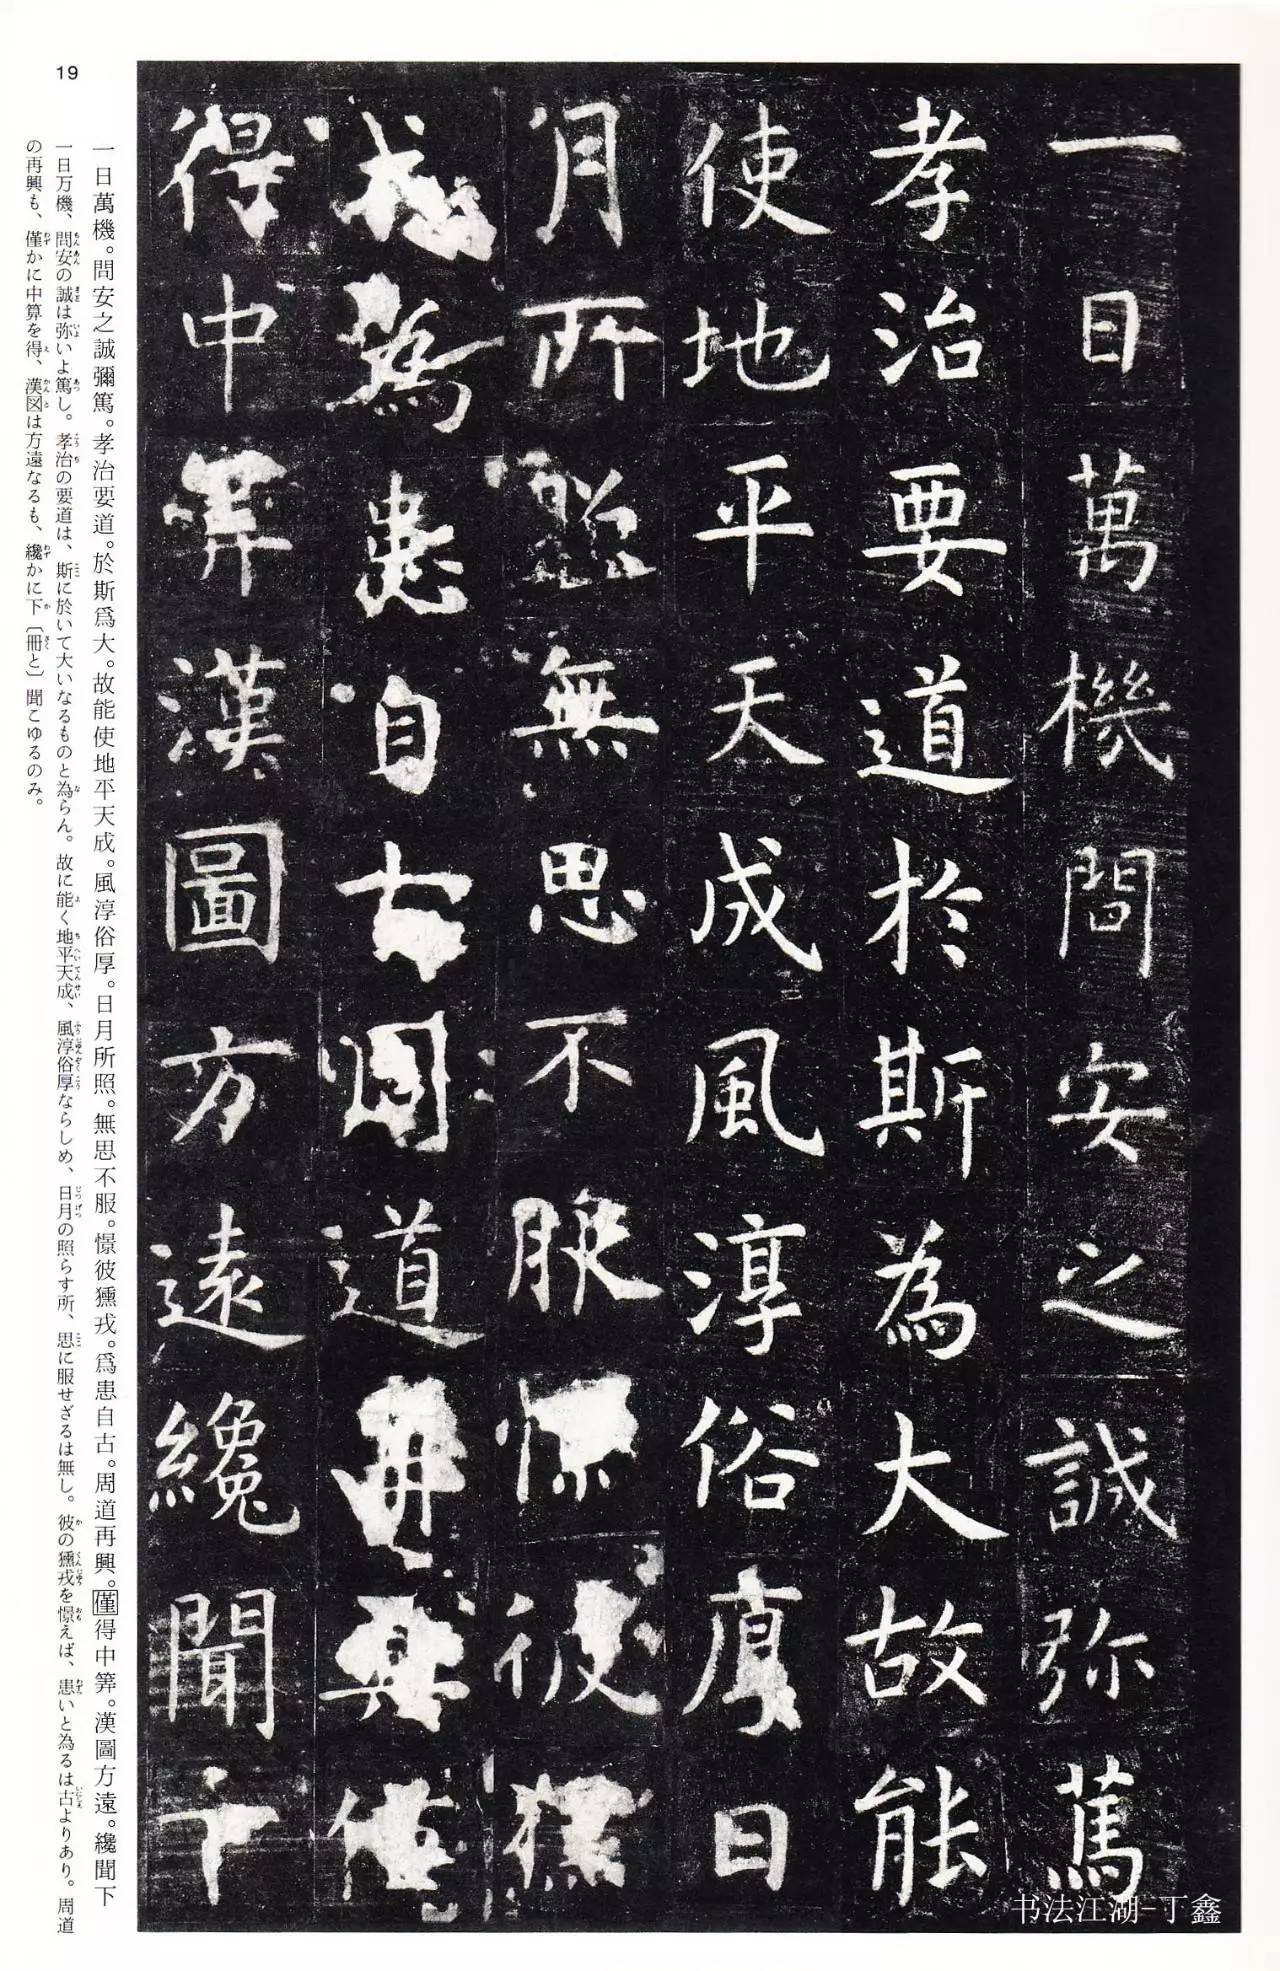 一日萬機問安之誠弥篤
孝治要道於斯為大故能
使地平天成風淳俗厚日
月所照無思不服憬彼獯
戎為患自古周道再興僅
得中筭漢圖方遠纔聞下
19
一日萬機。問安之誠彌篤。孝治要道。於斯爲大。故能使地平天成。風淳俗厚。日月所照。無思不服。憬彼獯戎。爲患自古。周道再興。僅得中筭。漢圖方遠。纔聞下
一日万機、問安の誠は弥いよ篤し。孝治の要道は、斯に於いて大いなるものと為らん。故に能く地平天成、風淳俗厚ならしめ、日月の照らす所、思に服せざるは無し。彼の獯戎を憬えば、患いと為るは古よりあり。周道
の再興も、僅かに中算を得、漢図は方遠なるも、纔かに下〔冊と〕聞こゆるのみ。
书法江湖-丁鑫